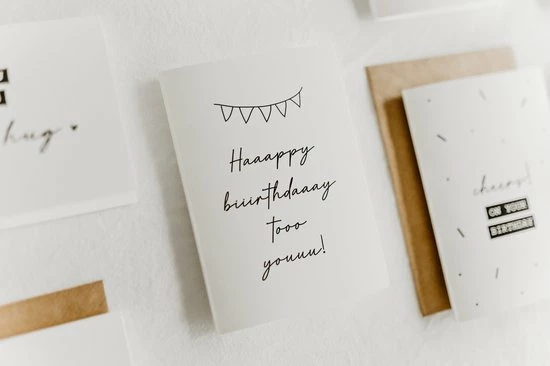 hug
Haaappy
biiirthdaaay
tooo
youuu!
cheers!
ON YOUR
BIRTHDAY